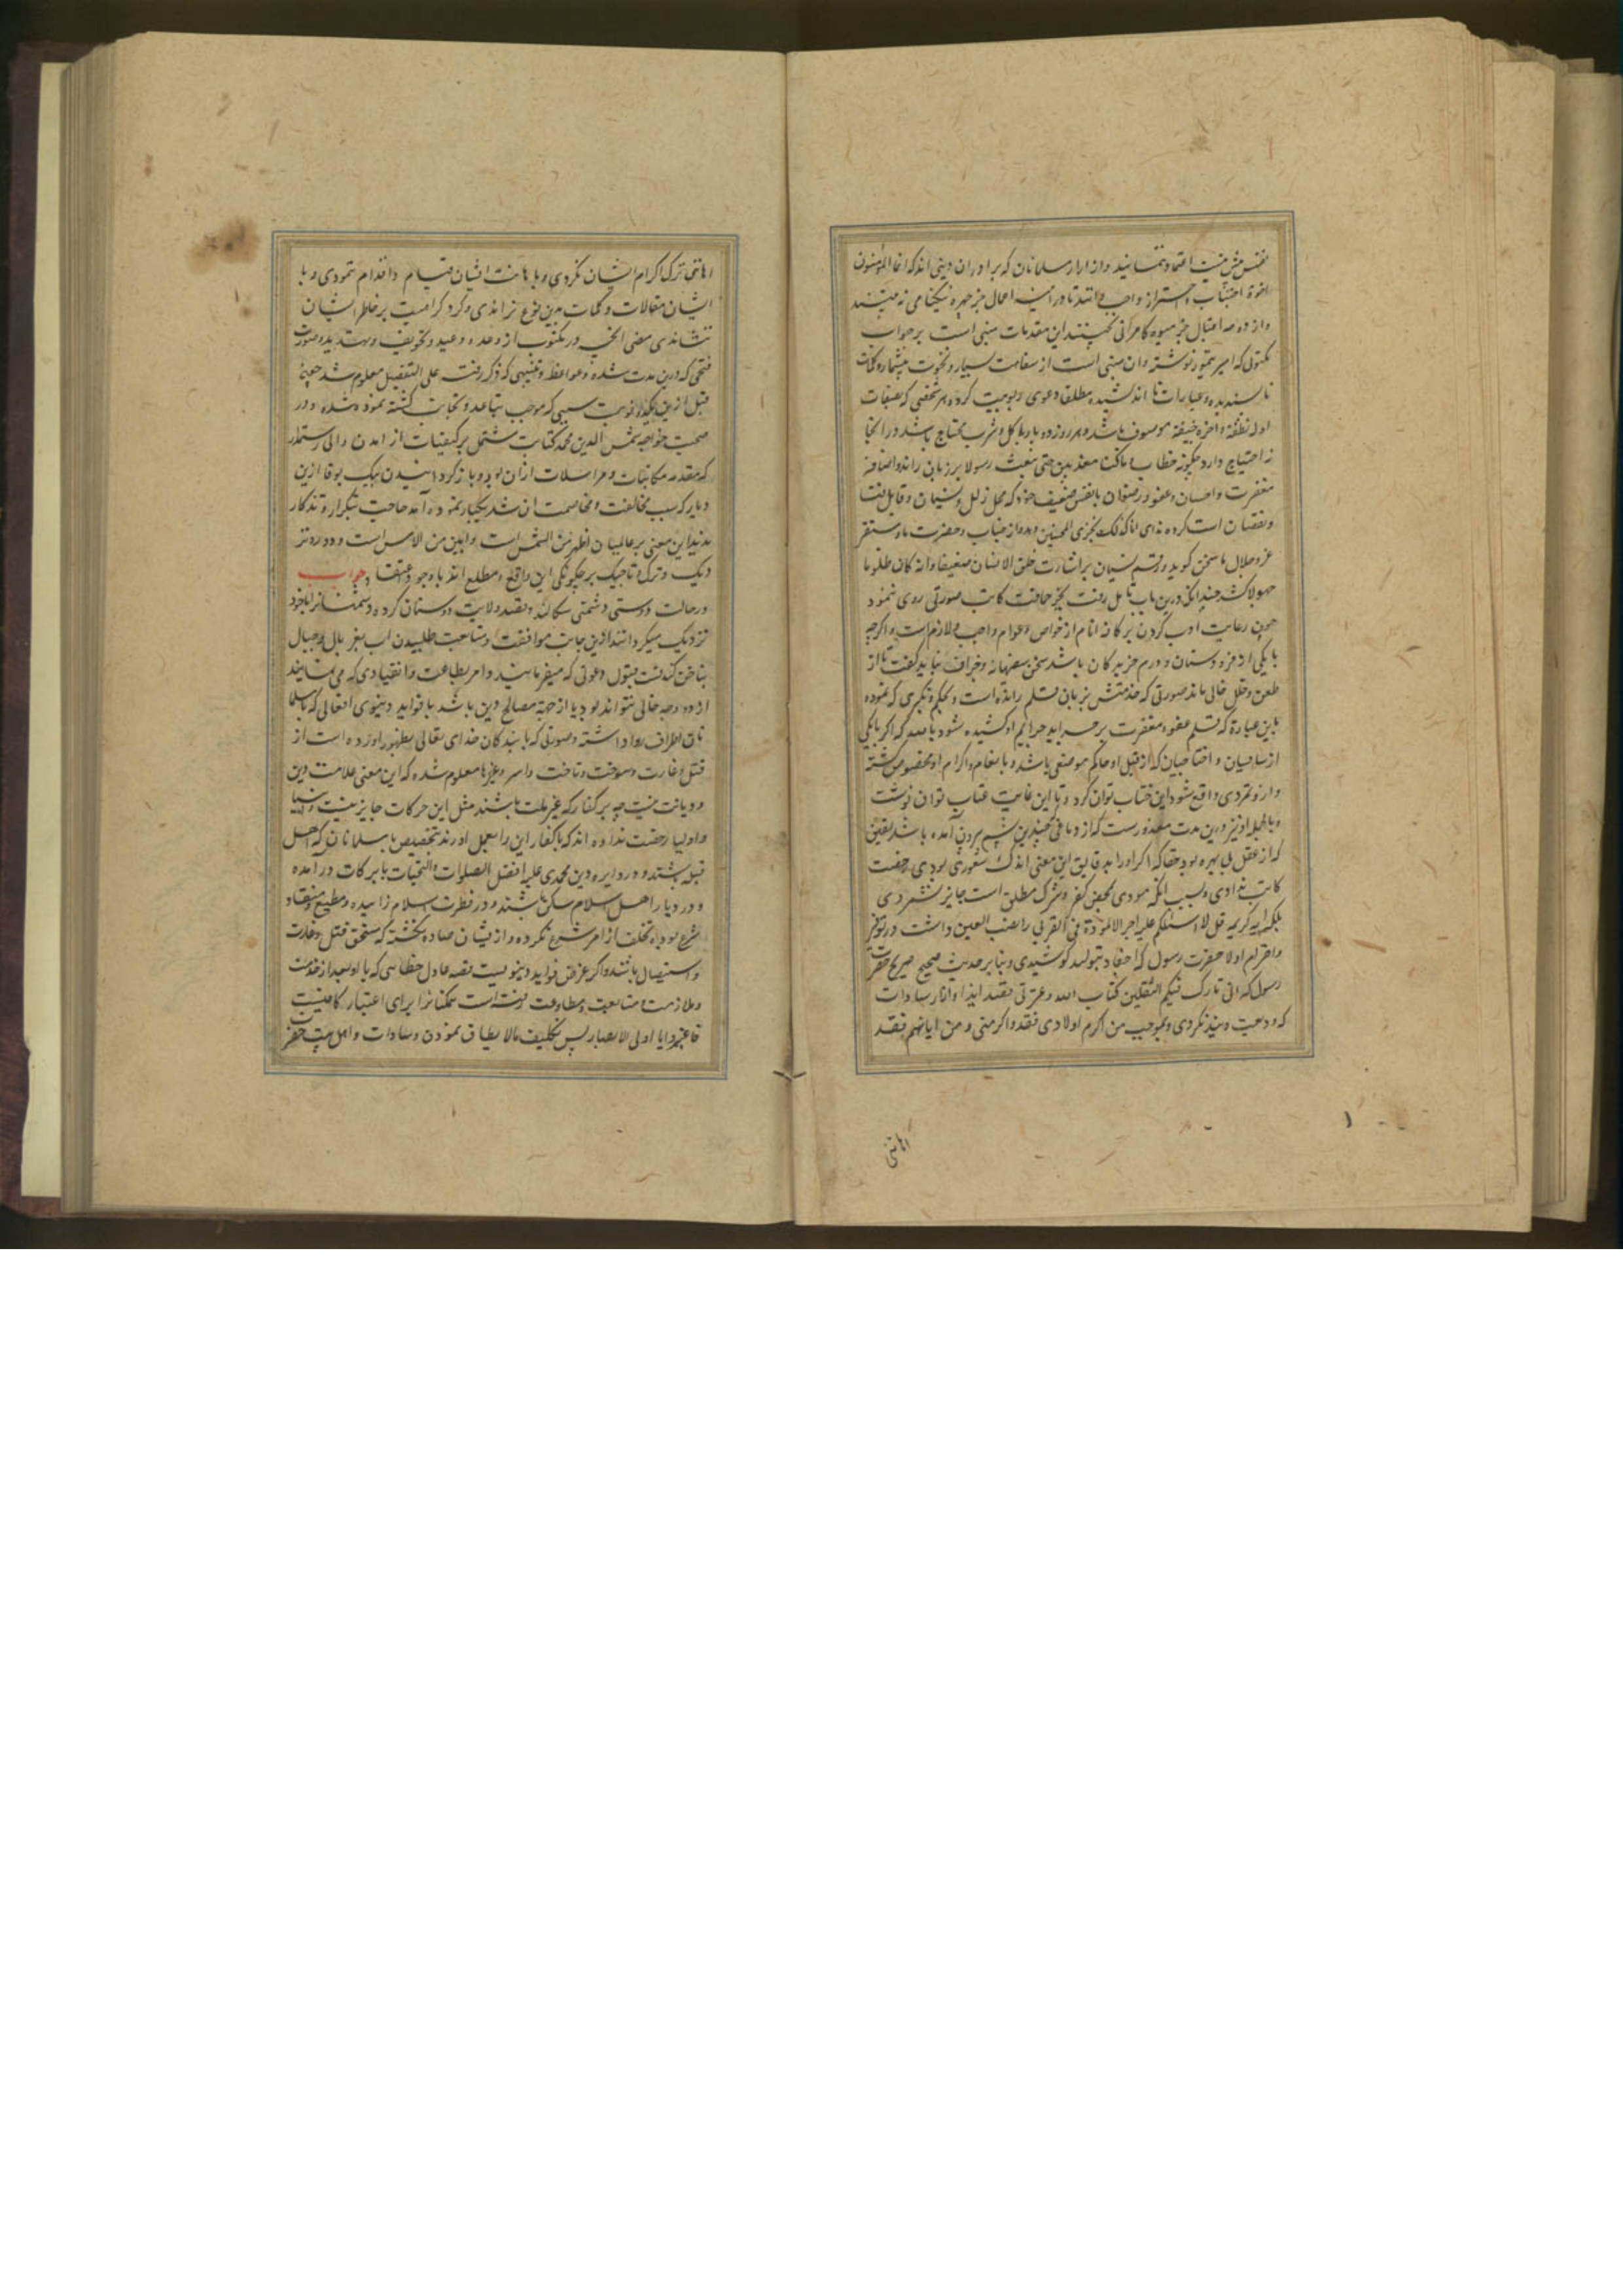 نفس پیش نیست التجا و تمنا نمایند و از ازار مسلمانان که برادران دینی اند که انما المؤمنون
اخوة اجتناب و احتراز واجب دانند تا در اینه اعمال جز چهره نیکنامی نه بینند
و از دوحه اقبال جز میوه کامرانی نچینند این مقدمات مبنی است بر جواب
مکتوبی که امیر تیمور نوشته و ان مبنی است از سفاهت بسیار و نخوت بیشمار و کلمات
ناپسندیده و عبارات نا اندیشیده مطلقا دعوی ربوبیت کرده هر شخصی که بصفات
اوله نطفة و اخره جیفة موصوف باشد و هر روز ده بار باکل و شرب محتاج باشد و را انجا
احتیاج دارد چگونه خطاب و ماکنا معذبین حتی نبعث رسولا بر زبان راند و اضافه
مغفرت و احسان و عفو و رضوان بانفس ضعیف خود که محل زلل و نسیان و قابل
و نقصان است کرده ندای انا کذلک نجزی المحسنین دهد و از جناب و حضرت ما و مستقر
عز و جلال ما سخن گوید و رقم نسیان بر اشارت خلق الانسان ضعیفا و انه کان ظلوما
جهولا کشد چندانکه درین باب تامل رفت بجز حماقت کاتب صورتی روی ننمود
چون رعایت ادب کردن بر کافه انام از خواص و عوام واجب و لازم است و اگرچه
با یکی از دوستان و درم خرید کان باشد سخن سفیهانه و جزاف نباید گفت تا از
طعن و خلل خالی ماند صورتی که خدمتش بر بان قلم رانده است و تحکم و تکبری که نموده
باین عبارة که قلم عفو و مغفرت بر جراید جرایم او کشیده شود باصد که اگر با یکی
از سپاهیان و اختاجیان که از قبل او حاکم موضعی باشد و بانعام و اکرام او مخصوص گشته
و از و تمردی واقع شود این خطاب توان کرد و تا این غایت عتاب توان نوشت
و بالجمله او نیز درین مدت معذورست که از دماغی چنین بیرون آمده باشد یقین
که از عقل بی بهره بود چه اگر او را بدقایق این معنی اندک شعوری بودی رخصت
کاتب ندادی و بسبب انکه مودی بمحض کفر و شرک مطلق است جایز نشمردی
بلکه ایه کریمه قل لا اسئلکم علیه اجرا الا المودة فی القربی را نصب العین داشت و در توقیر
و احترام اولاد حضرت رسول که احفاد بتول اند کوشیدی و بنا بر حدیث صحیح صریح حضرت
رسول که انی تارک فیکم الثقلین کتاب الله و عترتی قصد ایذا و ازار سادات
که ودیعت وی اند نکردی و بموجب من اکرم اولادی فقد اکرمنی و من اهانهم فقد
اهاننی
اهاننی ترک اکرام ایشان نکردی و با هانت ایشان قیام و اقدام ننمودی و با
ایشان مقالات و کلمات بدین نوع نراندی و گرد کراهیت بر خاطر ایشان
ننشاندی مضی انچه در مکتوب از وعد و وعید و تخویف و تهدید و صورت
فتحی که درین مدت شده و مواعظ و تنبیهی که ذکر رفته علی التفصیل معلوم شد
قبل ازین بیکدو نوبت سببی که موجب تباعد و تجانب گشته نموده شده و در
صحبت خواجه شمس الدین محمد کتابت مشتمل بر کیفیات از امدن والی رستمدار
که مقدمه مکاتبات و مراسلات ازان بود و باز گردانیدن بیک بوقا ازین
دیار که سبب مخالفت و مخاصمت ان شد یکبار نموده آمد حاجت بتکرار و تذکار
ندید این معنی بر عالمیان اظهر من الشمس است و ابین من الامس است و دور و نز
دیک و ترک و تاجیک بر چگونگی این واقع و مطلع اند با وجود اعتقاد جواب
در حالت دوستی دشمنی سگالد و بقصد ولایت دوستان کرده دشمنانرا با خود
نزدیک میگرداند ازین جانب موافقت و متابعت طلبیدن اب بغربال و جبال
بناخن کندنست قبول دعوتی که میفرمایند و امر بطاعت و انقیادی که می نمایند
از دو وجه خالی نتواند بود یا از جهة مصالح دین باشد یا فواید دنیوی افعالی که باسلما
نان اطراف روا داشته و صورتی که با بندگان خدای تعالی بظهور اورده است از
قتل و غارت و سوخت و تاخت و اسر و غیرها معلوم شده که این معنی علامت دین
و دیانت نیست چه بر کفار که غیر ملت باشند مثل این حرکات جایز نیست و انبیا
و اولیا رخصت نداده اند که با کفار این را بعمل اورند بتخصیص با مسلمانان که اهل
قبله باشند و در دایره دین محمدی علیه افضل الصلوات و التحیات با برکات در آمده
و در دیار اهل اسلام ساکن باشند و در فطرت اسلام زاییده و مطیع و منقاد
شرع بوده و تخلف از امر شرع نکرده و از یشان صادر نگشته که مستحق قتل و غارت
و استیصال باشند و اگر غرض فواید دنیویست قصه عادل حطا سی که با او بعد از خدمت
و ملازمت و متابعت و مطاوعت رفته است همگنانرا برای اعتبار کافیست
فاعتبروا یا اولی الابصار پس تکلیف مالا یطاق نمودن و سادات و اهل بیت حضرت